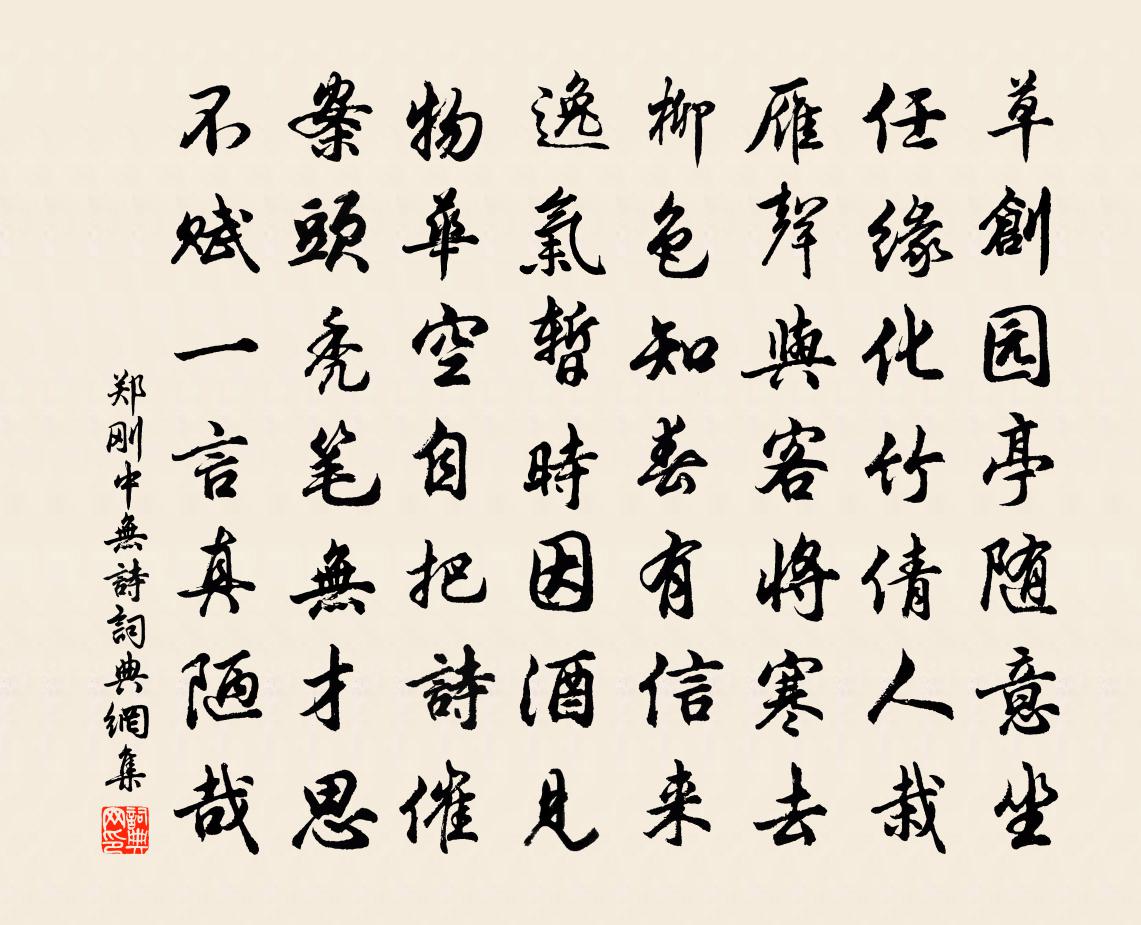 草創园亭随意坐
任缘化竹倩人栽
雁聲與客將寒去
柳色知春有信来
逸氣暫時因酒見
物華空自把詩催
案頭秃笔無才思
不赋一言真陋哉
郑刚中無詩詞典網集
詞典網印